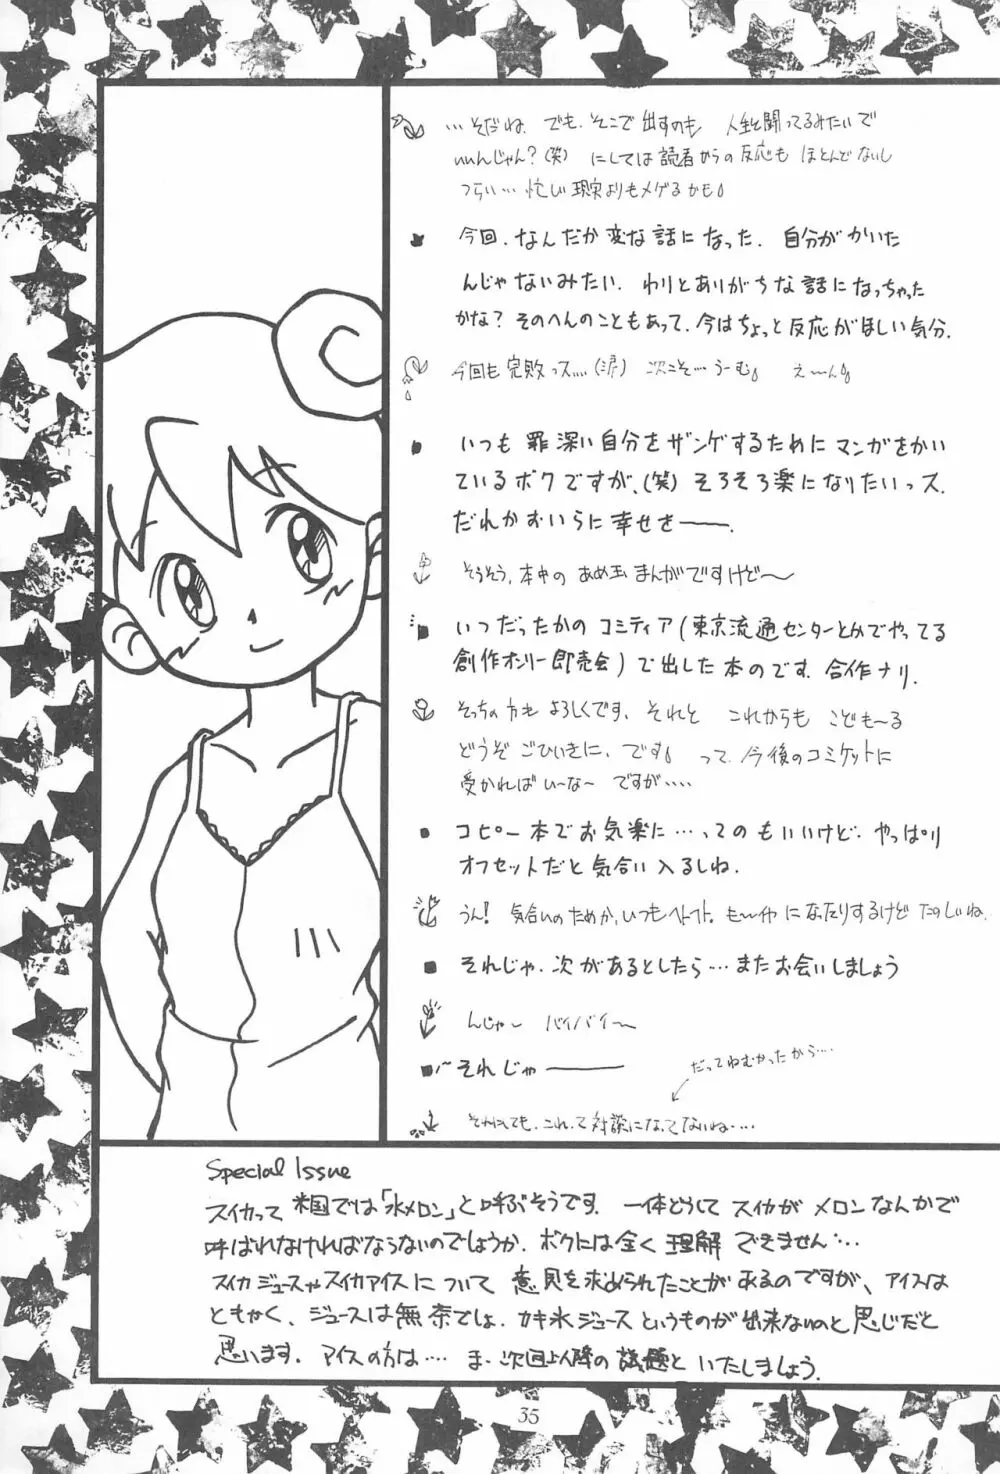 …そだね. でも. そこで出すのも 人生と闘ってるみたいで
いいんじゃん？(笑) にしては読者からの反応も ほとんどないし
つらい… 忙しい現実よりもメゲるかも。
今回. なんだか変な話になった. 自分がかいた
んじゃないみたい. わりとありがちな話になっちゃった
かな？そのへんのこともあって. 今はちょっと反応がほしい気分.
今回も完敗っス….(涙) 次こそ…うーむ。 え〜ん。
いつも罪深い自分をザンゲするためにマンガをかい
ているボクですが、(笑) そろそろ楽になりたいっス.
だれかおいらに幸せを——.
そうそう. 本中の あめ玉まんがですけど〜
いつだったかのコミティア(東京流通センターとかでやってる
創作オンリー即売会)で出した本のです. 合作ナリ.
そっちの方も よろしくです. それと これからも こども〜る
どうぞ ごひいきに. です。 って. 今後のコミケットに
受かればい〜な〜 ですが….
コピー本でお気楽に…ってのもいいけど. やっぱり
オフセットだと気合い入るしね.
うん! 気合いのためか. いつもヘトヘト. も〜イヤ になったりするけど たのしいね.
それじゃ. 次があるとしたら…またお会いしましょう
んじゃ〜 バイバイ〜
〜それじゃ——
だってねむかったから…
それにしても. これって対談になってないね….
Special Issue
スイカって米国では「水メロン」と呼ぶそうです. 一体どうして スイカが メロンなんかで
呼ばれなければならないのでしょうか. ボクには全く理解 できません….
スイカジュースやスイカアイスについて 意見を求められたことがあるのですが、アイスは
ともかく、ジュースは無茶でしょ. カキ氷ジュース というものが出来ないのと同じだと
思います. アイスの方は… ま. 次回以降の議題と いたしましょう.
35